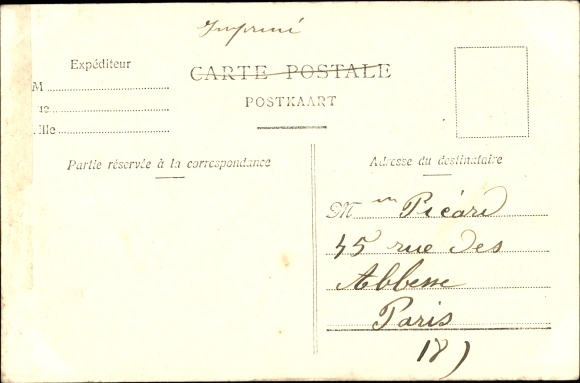 Imprimé
Expéditeur
CARTE POSTALE
M
POSTKAART
ue
ille
Partie réservée à la correspondance
Adresse du destinataire
M Picard
45 rue des
Abbesse
Paris
18)